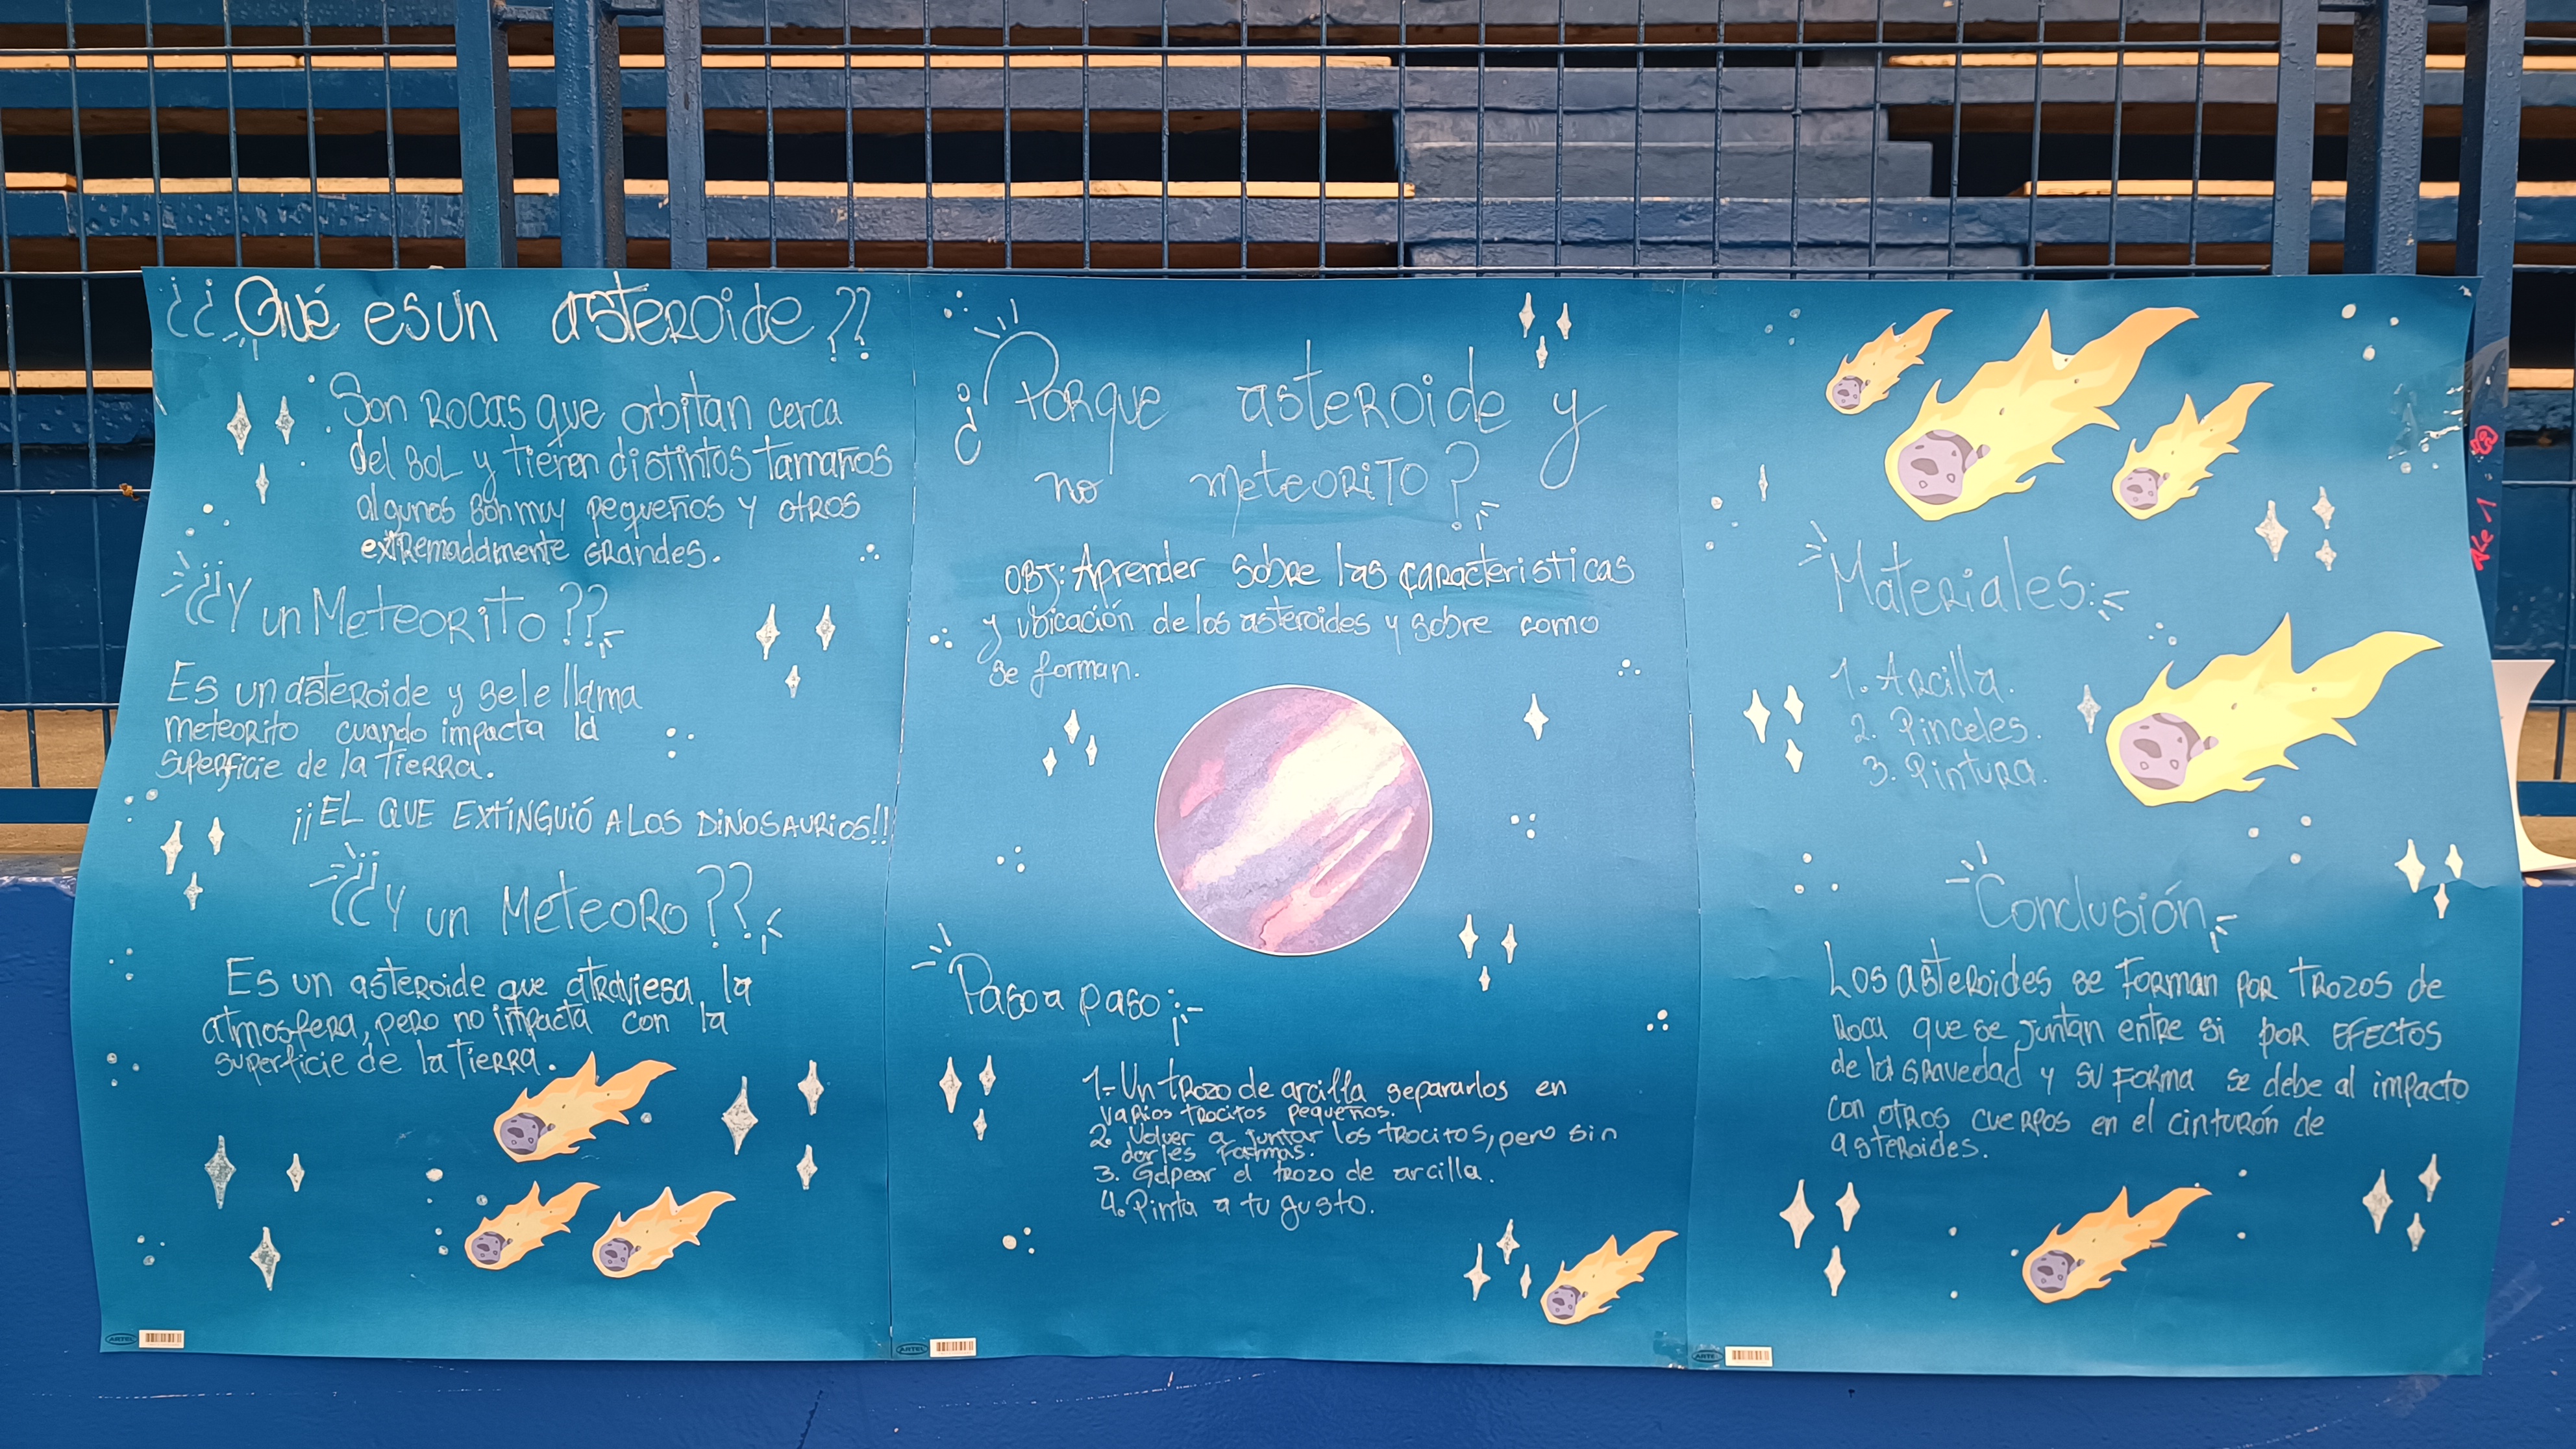 ¿¿Qué es un asteroide??
Son rocas que orbitan cerca
del sol y tienen distintos tamaños
algunos son muy pequeños y otros
extremadamente grandes.
¿¿Y un Meteorito??
Es un asteroide y se le llama
meteorito cuando impacta la
superficie de la tierra.
¡¡EL QUE EXTINGUIÓ A LOS DINOSAURIOS!!
¿¿Y un Meteoro??
Es un asteroide que atraviesa la
atmosfera, pero no impacta con la
superficie de la tierra.
ARTEL
¿Porque asteroide y
no meteorito?
OBJ: Aprender sobre las caracteristicas
y ubicación de los asteroides y sobre como
se forman.
Paso a paso:
1.- Un trozo de arcilla separarlos en
varios trocitos pequeños.
2. Volver a juntar los trocitos, pero sin
darles formas.
3. Golpear el trozo de arcilla.
4. Pinta a tu gusto.
ARTEL
Materiales:
1. Arcilla.
2. Pinceles.
3. Pintura.
Conclusión
Los asteroides se forman por trozos de
roca que se juntan entre si por efectos
de la gravedad y su forma se debe al impacto
con otros cuerpos en el cinturón de
asteroides.
ARTEL